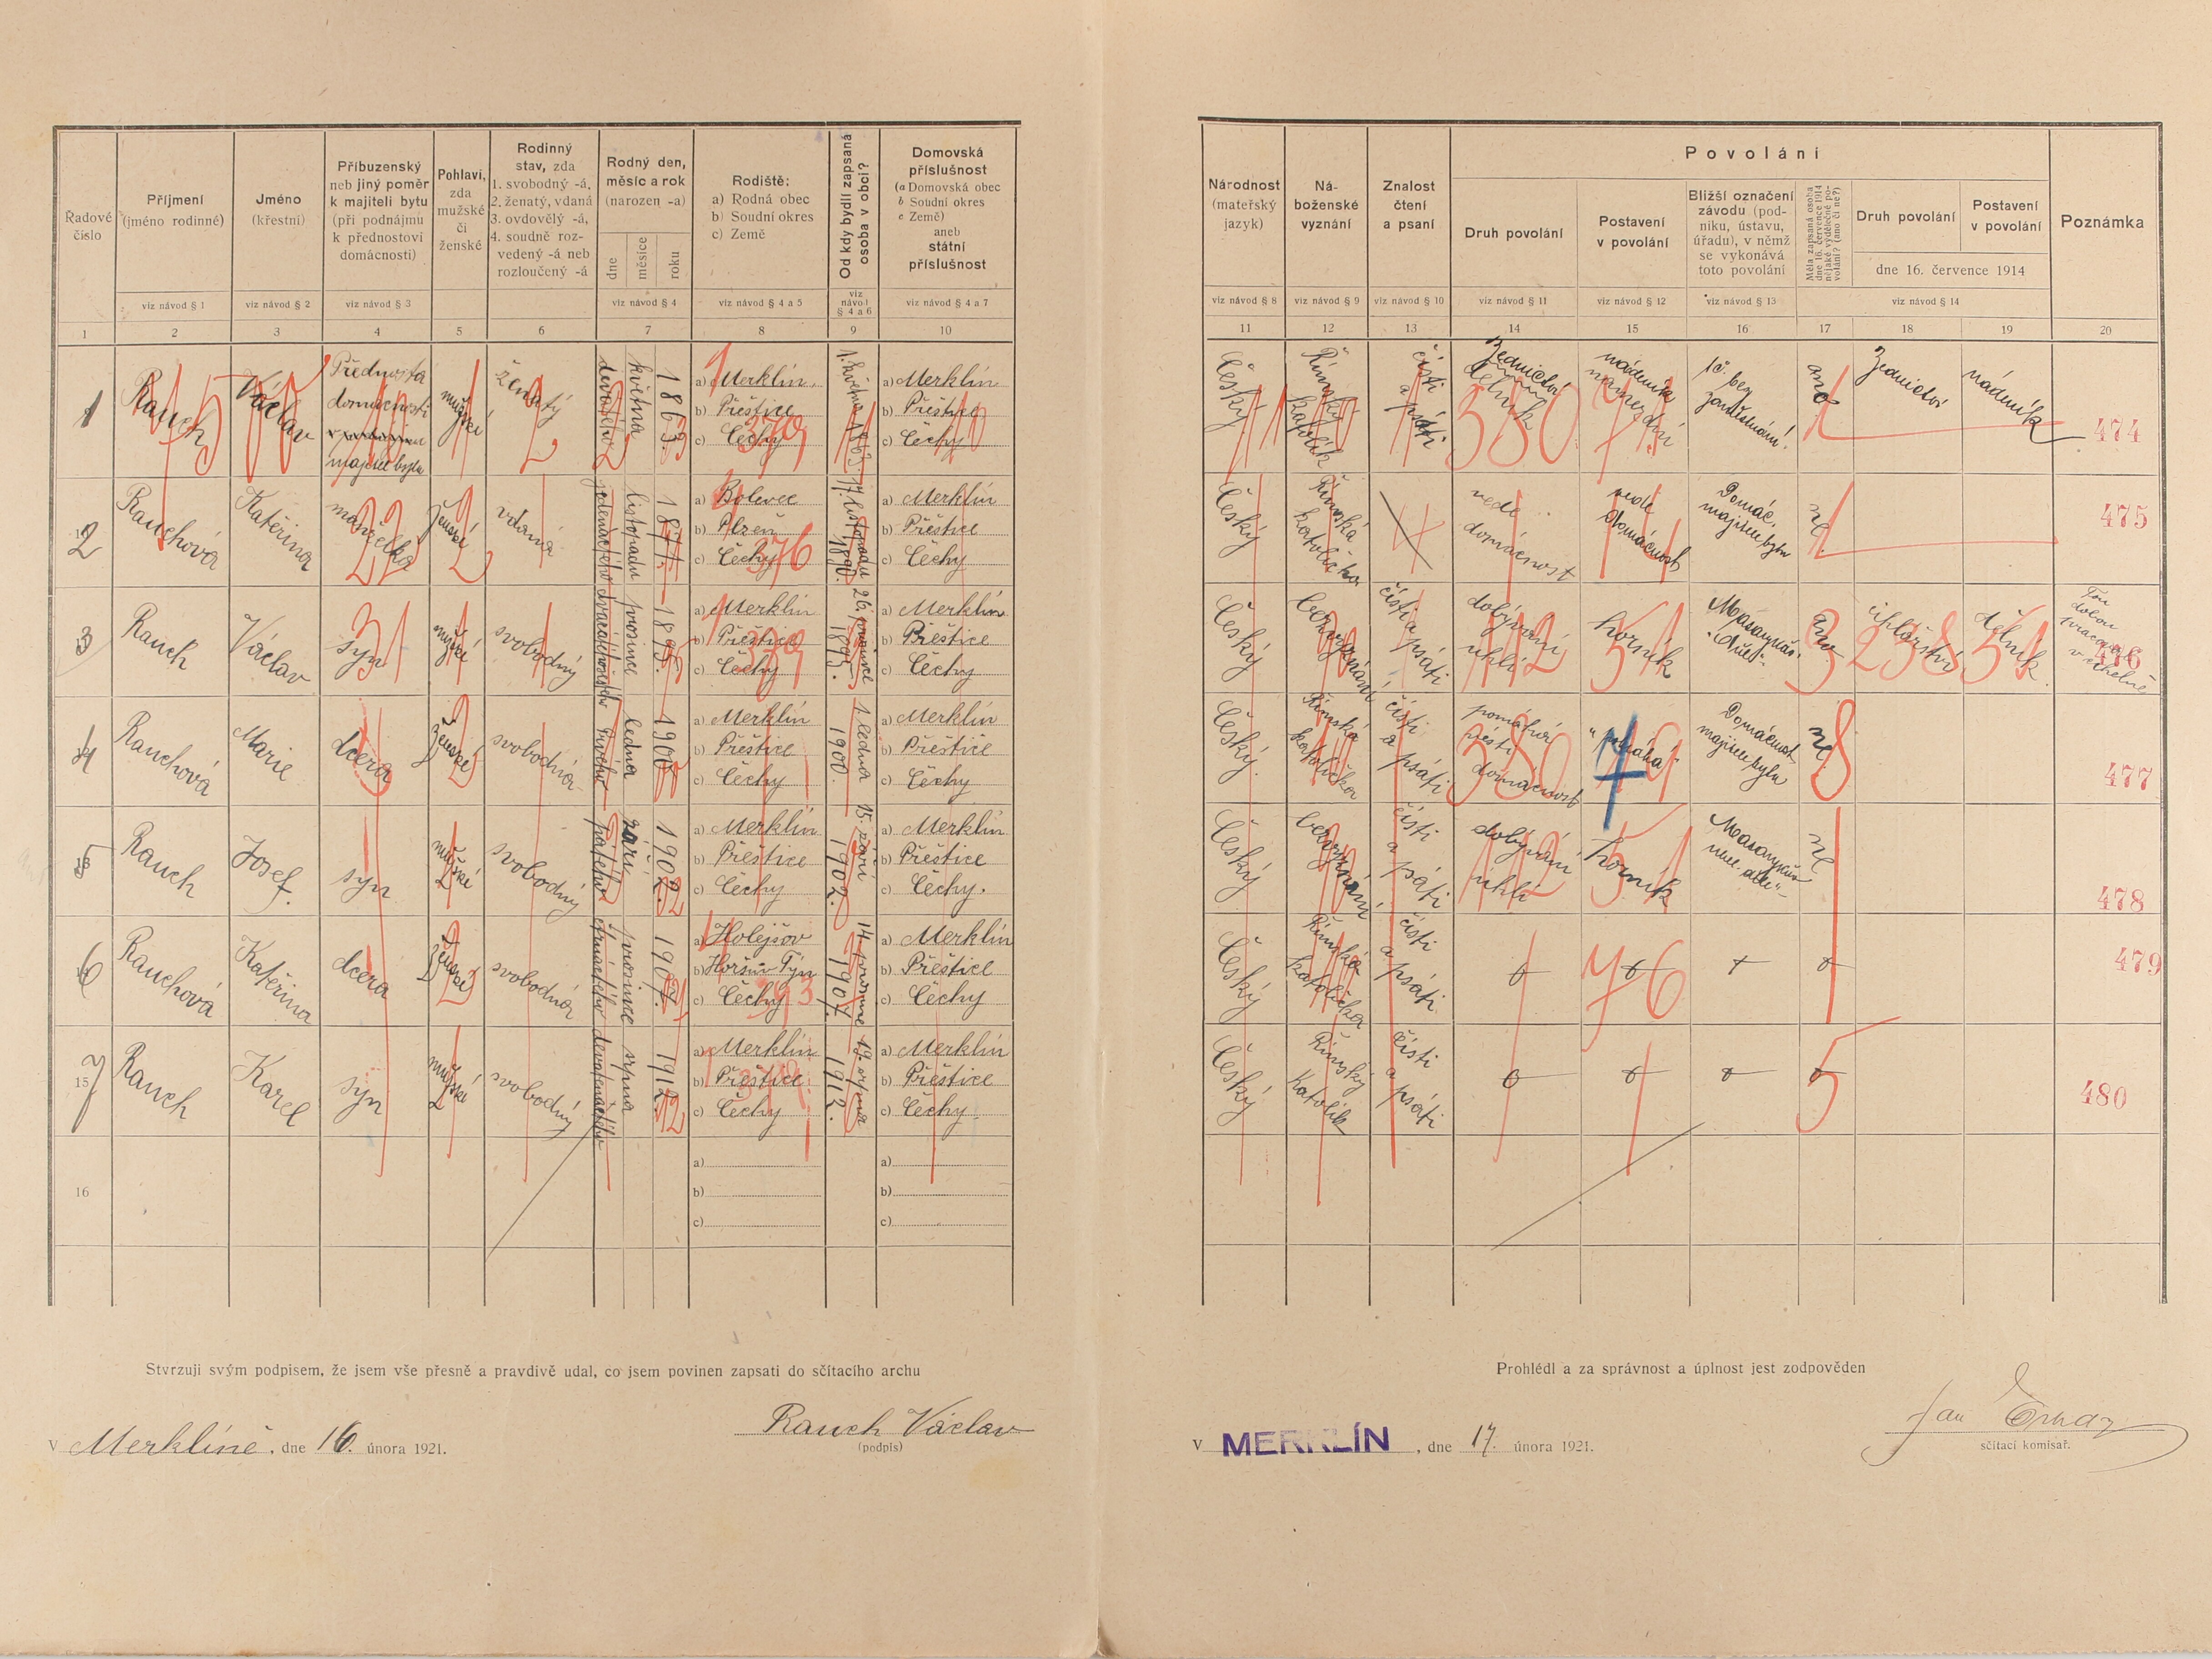 Řadové číslo
Příjmení
(jméno rodinné)
viz návod § 1
Jméno
(křestní)
viz návod § 2
Příbuzenský
neb jiný poměr
k majiteli bytu
(při podnájmu
k přednostovi
domácnosti)
viz návod § 3
Pohlaví,
zda
mužské
či
ženské
Rodinný
stav, zda
1. svobodný -á,
2. ženatý, vdaná
3. ovdovělý -á,
4. soudně roz-
vedený -á neb
rozloučený -á
Rodný den,
měsíc a rok
(narozen -a)
dne
měsíce
roku
viz návod § 4
Rodiště:
a) Rodná obec
b) Soudní okres
c) Země
viz návod § 4 a 5
Od kdy bydlí zapsaná
osoba v obci?
viz
návod
§ 4 a 6
Domovská
příslušnost
(a Domovská obec
b Soudní okres
c Země)
aneb
státní
příslušnost
viz návod § 4 a 7
1 2 3 4 5 6 7 8 9 10
Národnost
(mateřský
jazyk)
viz návod § 8
Ná-
boženské
vyznání
viz návod § 9
Znalost
čtení
a psaní
viz návod § 10
Povolání
Druh povolání
viz návod § 11
Postavení
v povolání
viz návod § 12
Bližší označení
závodu (pod-
niku, ústavu,
úřadu), v němž
se vykonává
toto povolání
viz návod § 13
Měla zapsaná osoba
dne 16. července 1914
nějaké výdělečné po-
volání? (ano či ne?)
Druh povolání
Postavení
v povolání
dne 16. července 1914
viz návod § 14
Poznámka
11 12 13 14 15 16 17 18 19 20
1 Rauch Václav Přednosta domácnosti majitel bytu mužské ženatý devátého května 1863 a) Merklín b) Přeštice c) Čechy 1. května 1863. a) Merklín b) Přeštice c) Čechy
Český Římský katolík čísti a psáti Zednický dělník nádeník ano Zednictví nádeník 474
2 Rauchová Kateřina manželka ženské vdaná jedenáctého listopadu 1871. a) Bolevec b) Plzeň c) Čechy 17. listopadu 1890. a) Merklín b) Přeštice c) Čechy
Český Římská katolička vede domácnost vede domácnost Domác. majitele bytu ne. 475
3 Rauch Václav syn mužské svobodný dvacátéhošestého prosince 1895. a) Merklín b) Přeštice c) Čechy 26. prosince 1895. a) Merklín b) Přeštice c) Čechy
Český bez vyznání čísti a psáti dobývání uhlí horník ano cihlářství dělník. 476
4 Rauchová Marie dcera ženské svobodná prvého ledna 1900 a) Merklín b) Přeštice c) Čechy 1 ledna 1900. a) Merklín b) Přeštice c) Čechy
Český. Římská katolička čísti a psáti pomáhá vésti domácnost "pomáhá" Domácnost majitele bytu ne. 477
5 Rauch Josef. syn mužské svobodný pátého září 1902. a) Merklín b) Přeštice c) Čechy 15. září 1902. a) Merklín b) Přeštice c) Čechy.
Český bez vyznání čísti a psáti dobývání uhlí horník ne 478
6 Rauchová Kateřina dcera ženské svobodná čtrnáctého prosince 1907. a) Holejšov b) Horšův Týn c) Čechy 14 prosince 1907. a) Merklín b) Přeštice c) Čechy
Český Římská katolička čísti a psáti 479
7 Rauch Karel syn mužské svobodný devatenáctého srpna 1912. a) Merklín b) Přeštice c) Čechy 19. srpna 1912. a) Merklín b) Přeštice c) Čechy.
Český Římský katolík čísti a psáti 480
16 a) b) c) a) b) c)
Stvrzuji svým podpisem, že jsem vše přesně a pravdivě udal, co jsem povinen zapsati do sčítacího archu
Rauch Václav
(podpis)
V Merklíně, dne 16. února 1921.
Prohlédl a za správnost a úplnost jest zodpověden
Jan
sčítací komisař.
V MERKLÍN, dne 17. února 1921.